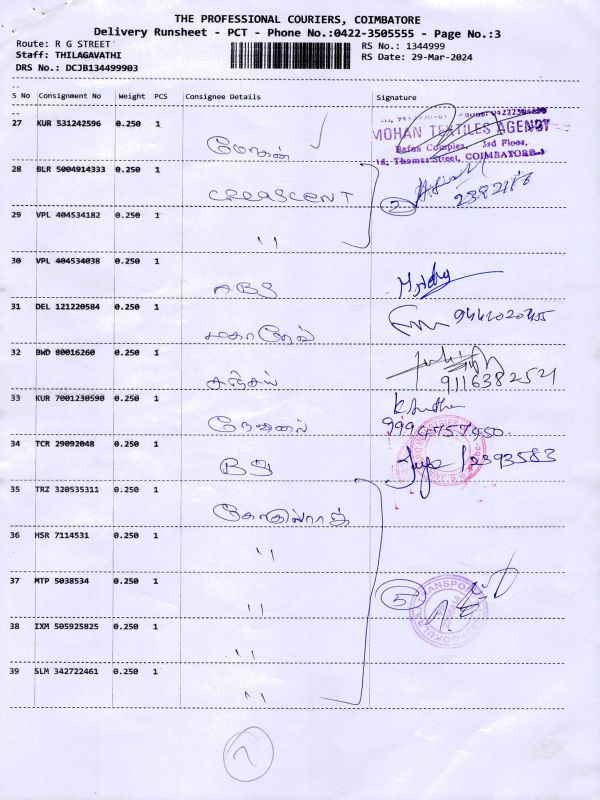 THE PROFESSIONAL COURIERS, COIMBATORE
Delivery Runsheet - PCT - Phone No.:0422-3505555 - Page No.:3
Route: R G STREET
RS No.: 1344999
Staff: THILAGAVATHI
RS Date: 29-Mar-2024
DRS No.: DCJB134499903
S No Consignment No Weight PCS Consignee Details Signature
27 KUR 531242596 0.250 1 மோகன்
MOHAN TEXTILES AGENCY
3rd Floor,
Thomas Street, COIMBATORE
28 BLR 5004914333 0.250 1 CREASCENT
2
29 VPL 404534182 0.250 1 "
30 VPL 404534038 0.250 1 ABS
31 DEL 121220584 0.250 1 மகாதேவ்
32 BWD 80016260 0.250 1 சஞ்சய் 9116382521
33 KUR 7001230590 0.250 1
34 TCR 29092048 0.250 1 BS 2393583
35 TRZ 320535311 0.250 1 கோகுல்ராஜ்
36 HSR 7114531 0.250 1 "
37 MTP 5038534 0.250 1 " 5
38 IXM 505925825 0.250 1 "
39 SLM 342722461 0.250 1 "
2